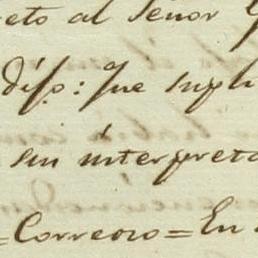 eto al Señor
dijo: Que supli
sin interpreta
=Correozo=En